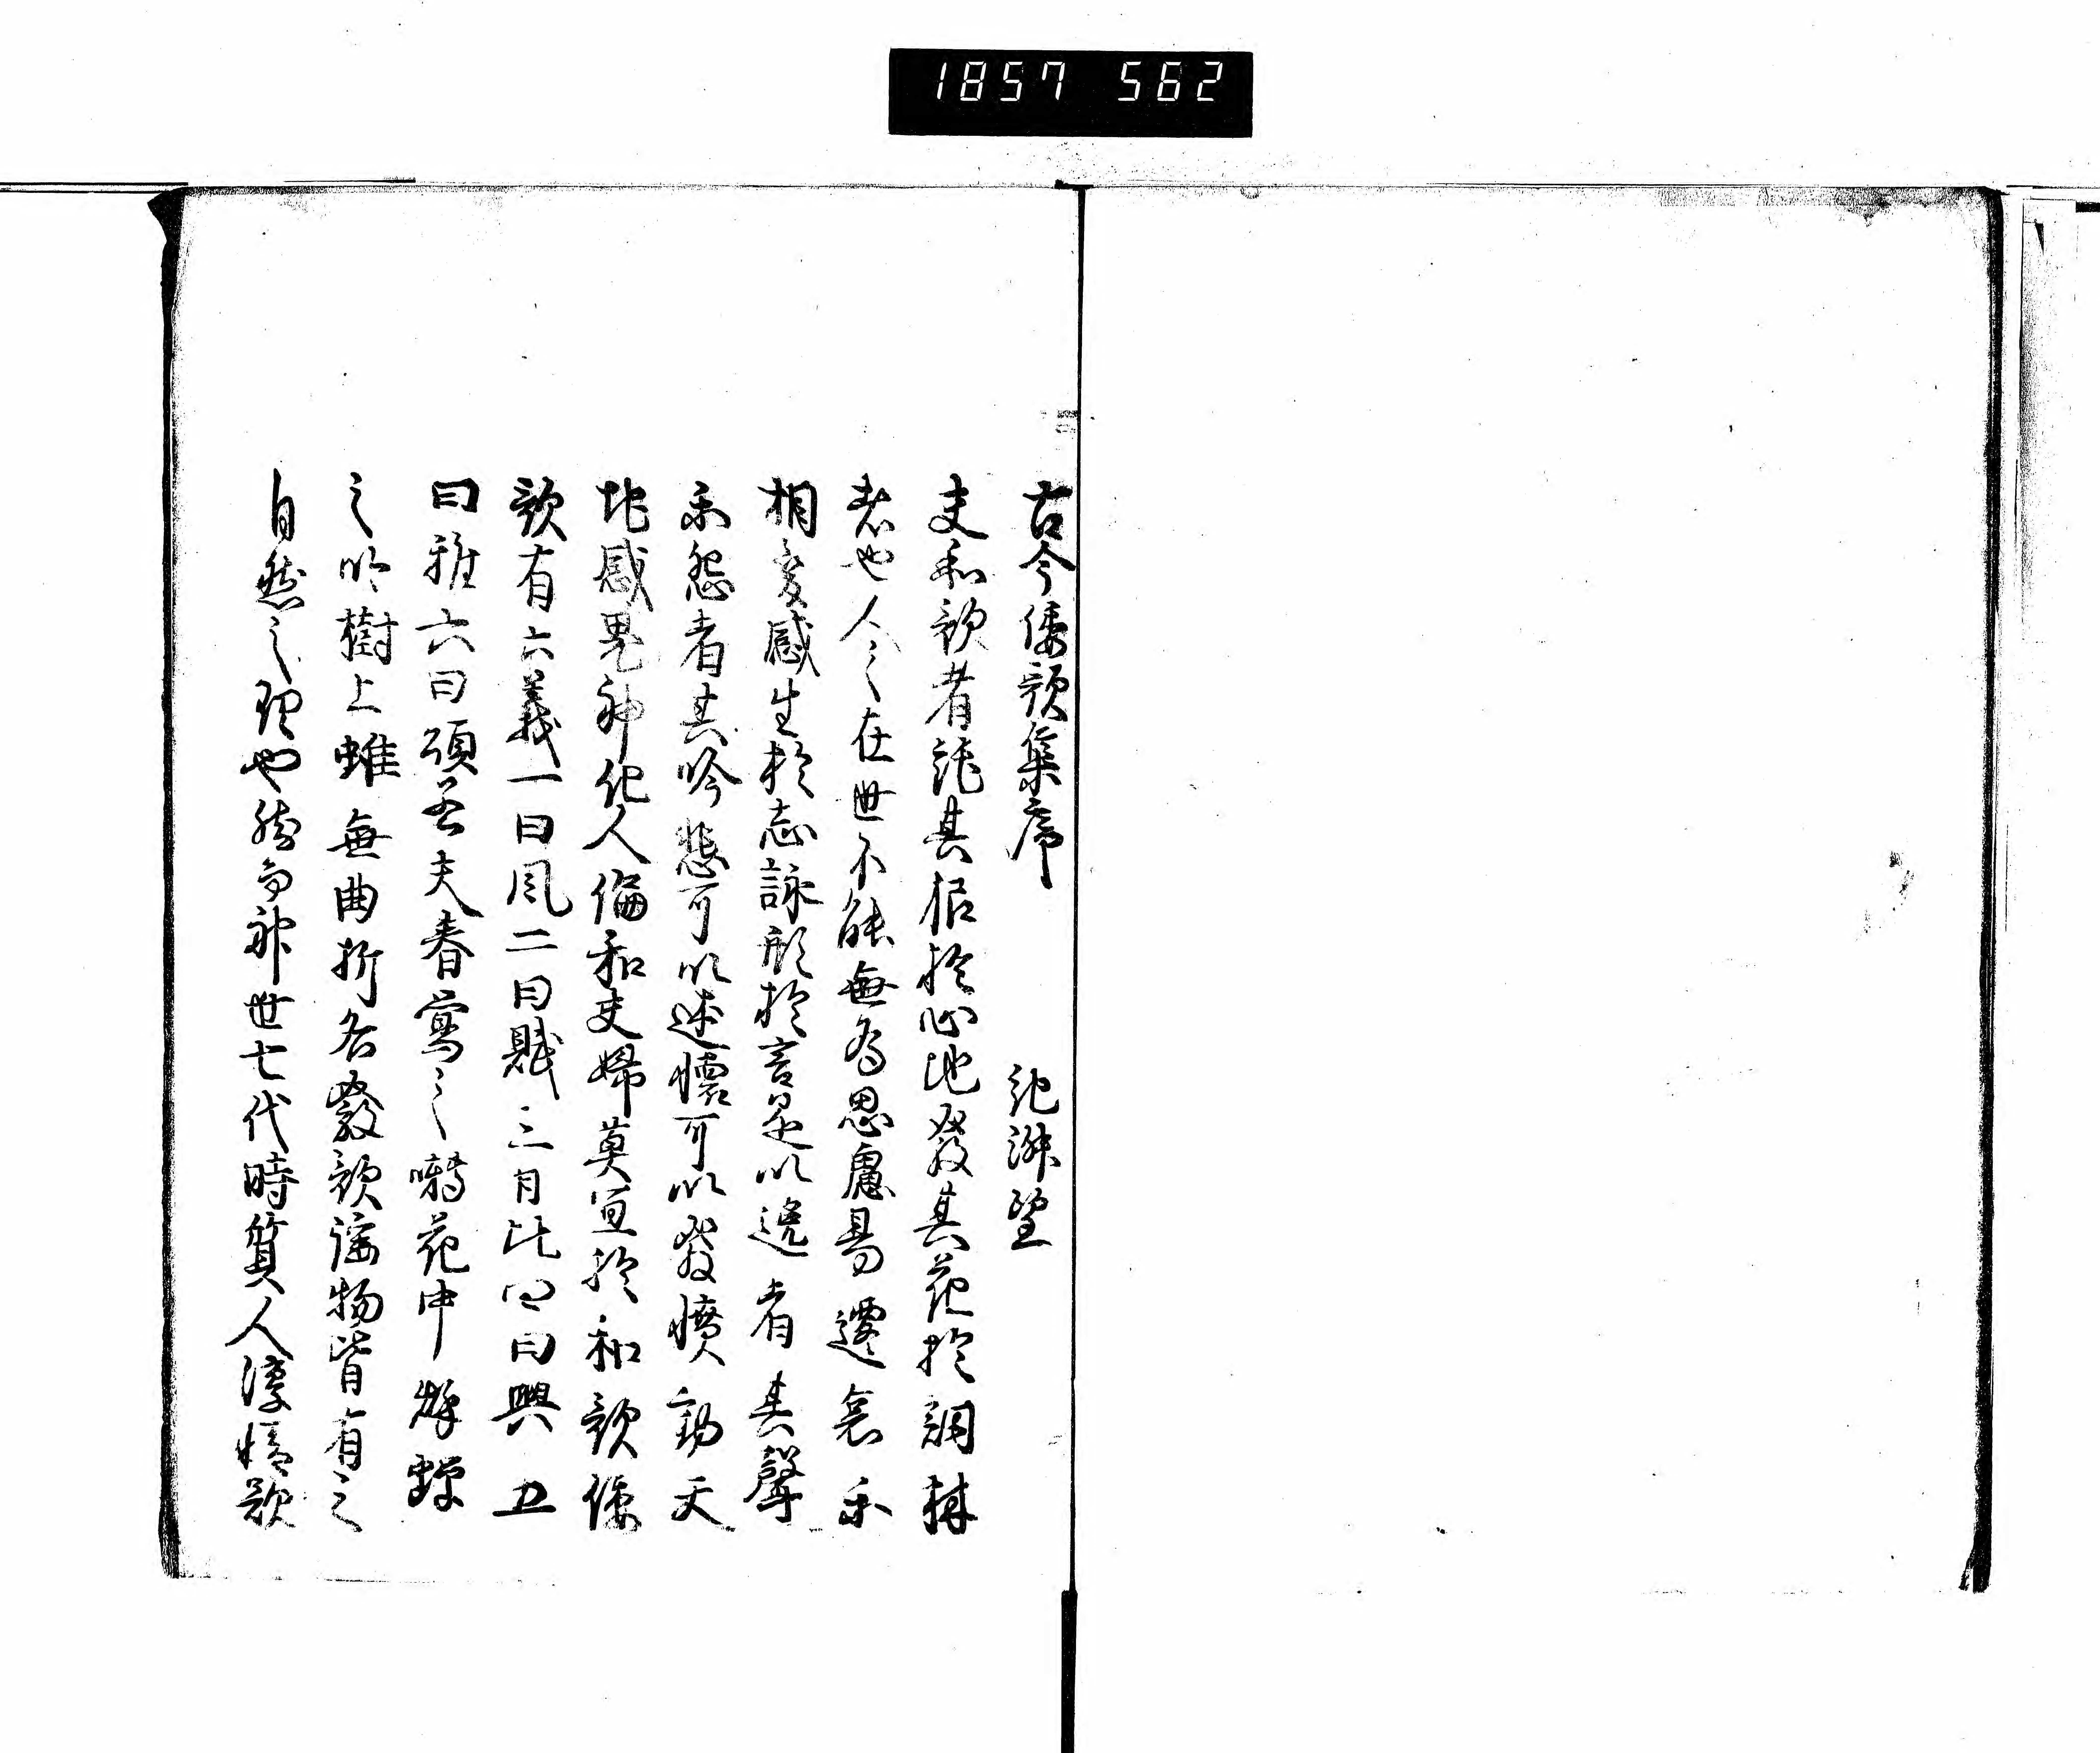 1857 562
古今倭歌集序 紀淑望
夫和歌者託其根於心地發其花於詞林
者也人之在世不能無爲思慮易遷哀樂
相変感生於志詠形於言是以逸者其聲
楽怨者其吟悲可以述懐可以發憤動天
地感鬼神化人倫和夫婦莫宜於和歌倭
歌有六義一曰風二曰賦三曰比四曰興五
曰雅六曰頌若夫春鶯之囀花中秋蝉
之吟樹上雖無曲折各發歌謡物皆有之
自然之理也然而神世七代時質人淳情欲